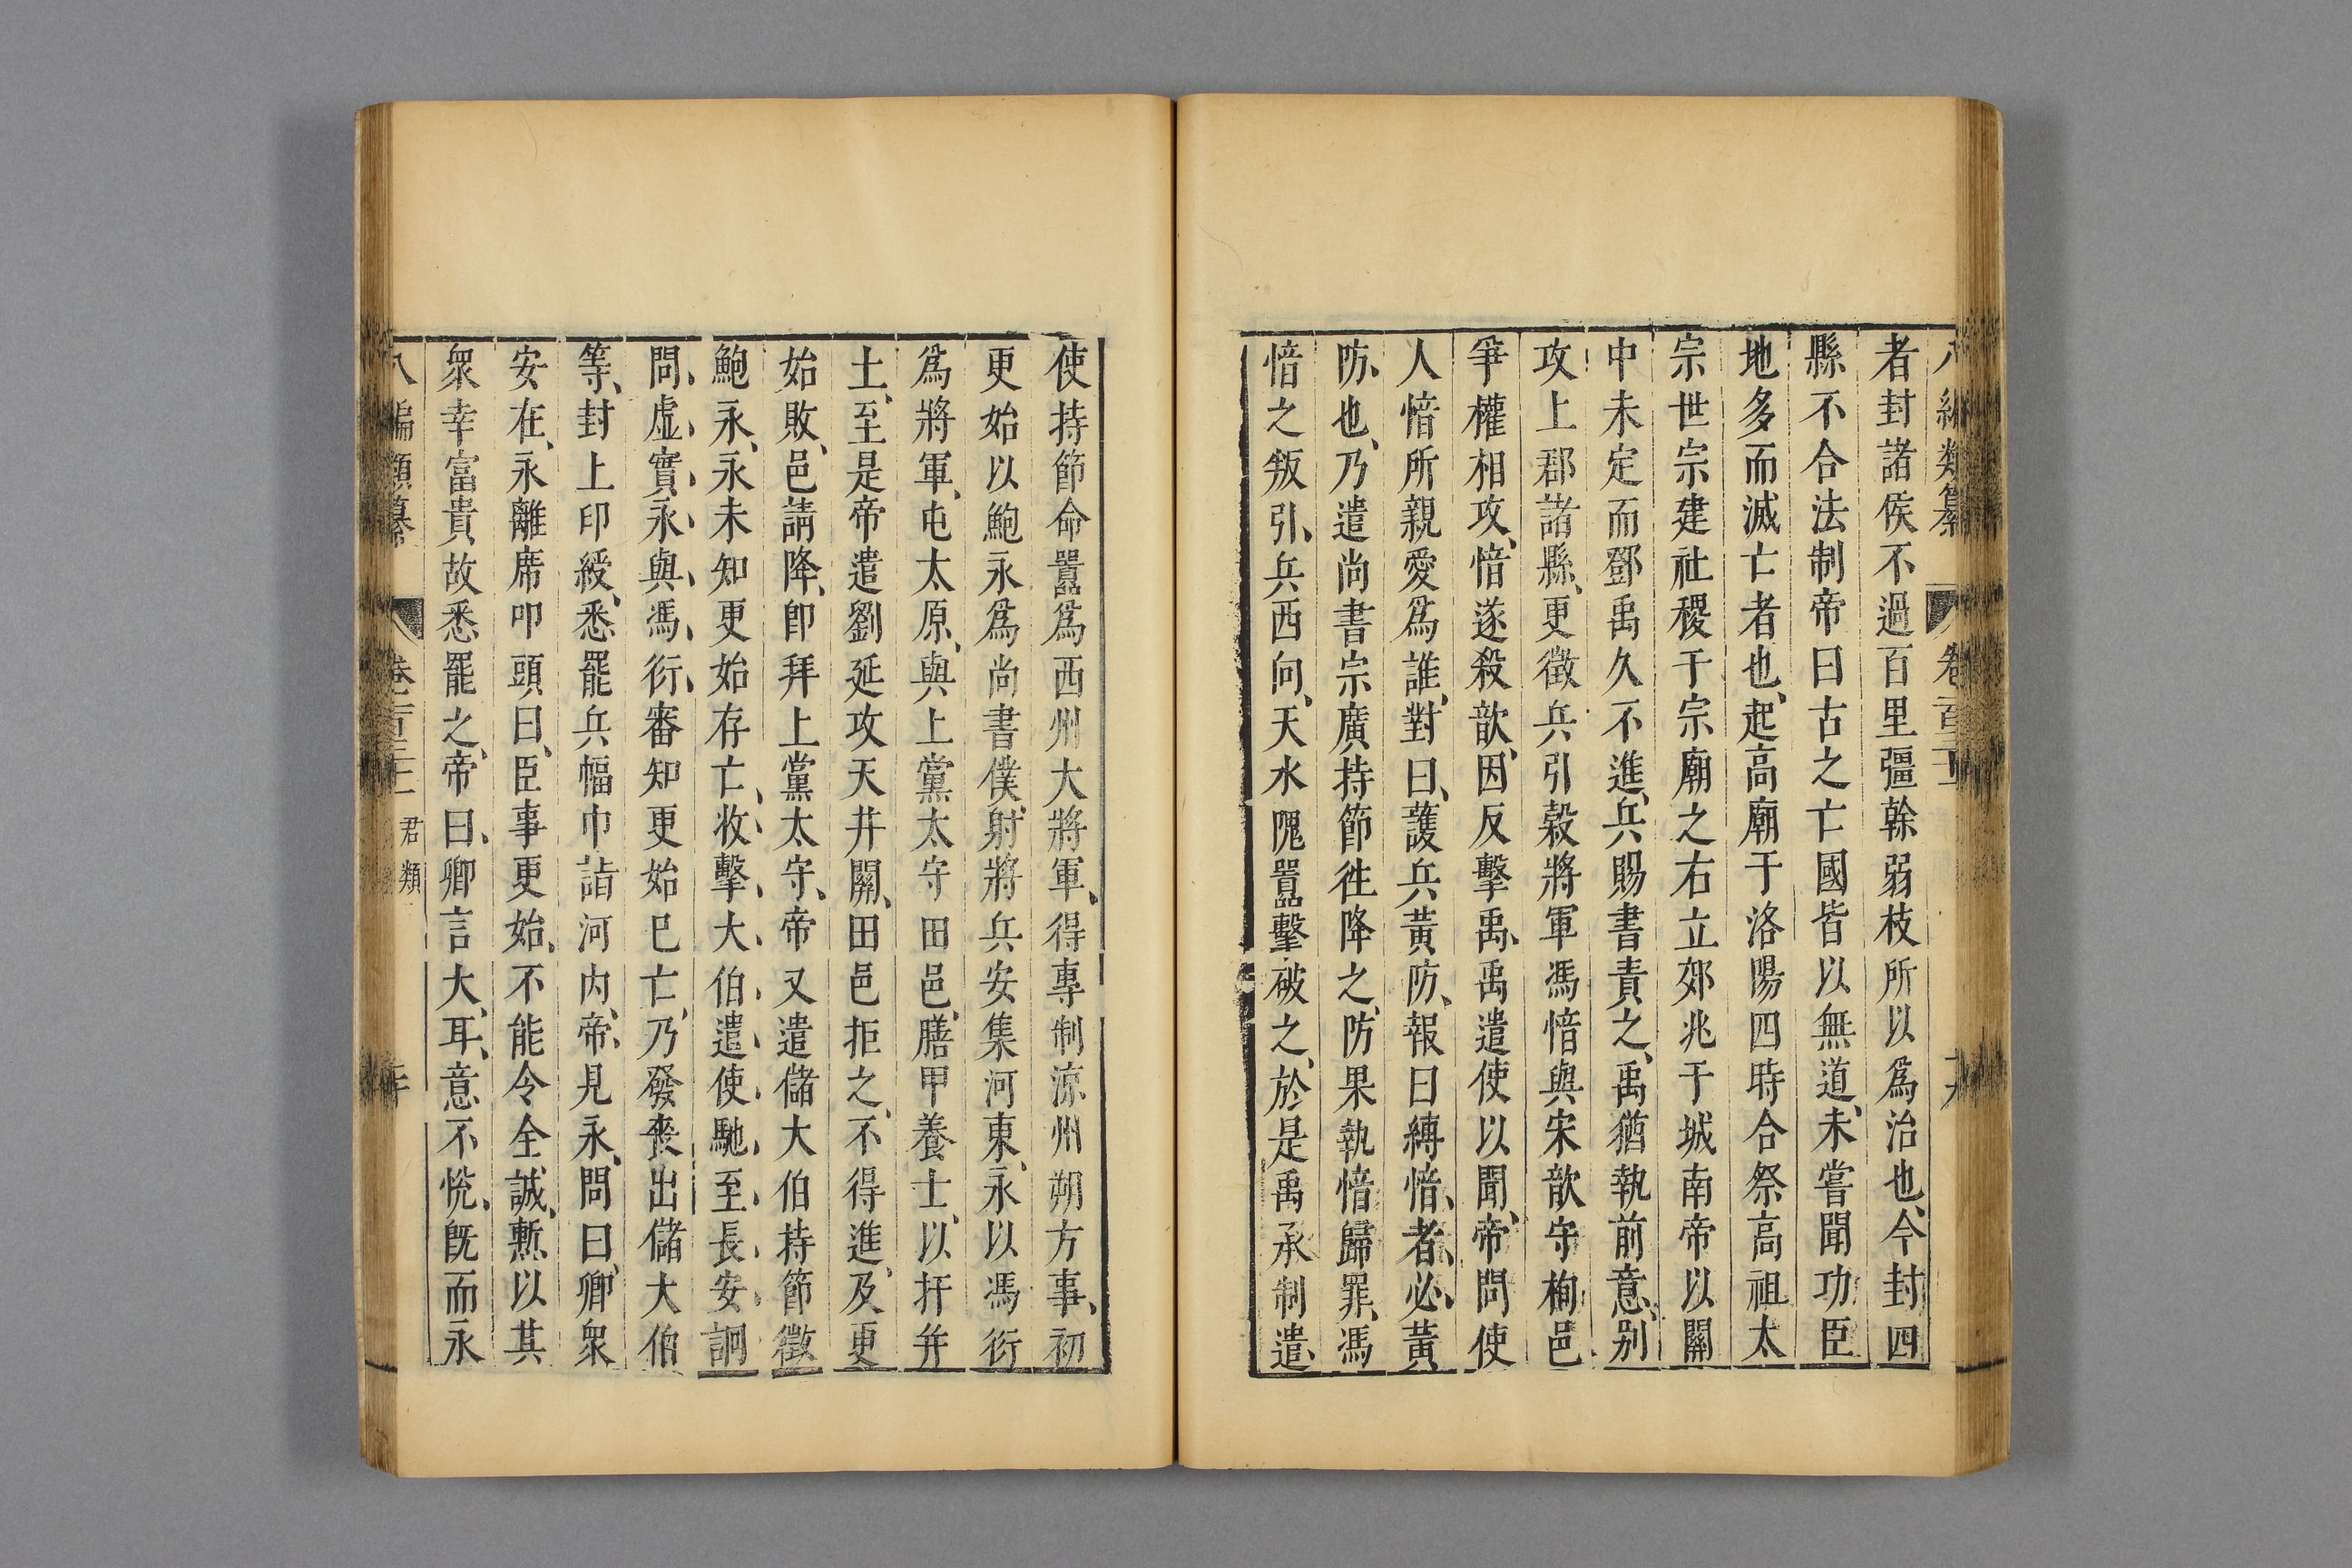 者封諸侯不過百里彊榦弱枝所以爲治也、今封四
縣不合法制帝曰古之亡國皆以無道、未嘗聞功臣
地多而滅亡者也、起高廟于洛陽四時合祭高祖太
宗世宗建社稷于宗廟之右立郊兆于城南帝以關
中未定而鄧禹久不進、兵賜書責之、禹猶執前意、别
攻上郡諸縣、更徵兵引穀將軍馮愔與宋歆守栒邑
爭權相攻、愔遂殺歆、因反擊禹、禹遣使以聞、帝問使
人愔所親愛爲誰、對曰、護兵黃防、報曰縛愔、者、必、黃
防、也、乃遣尚書宗廣持節徃降之、防果執愔歸罪、馮
愔之叛引、兵西向、天水隗囂擊破之、於是禹承制遣、
使持節命囂爲西州大將軍、得專制涼州朔方事、初
更始以鮑永爲尚書僕、射將兵安集河東、永以馮衍
爲將軍、屯太原、與上黨太守田邑、膳甲養士、以扞并
土、至是帝遣劉延攻天井關、田邑拒之、不得進、及更
始敗、邑請降、卽拜上黨太守、帝又遣儲大伯持節徵
鮑永、永未知更始存亡、收、擊、大、伯、遣、使、馳、至、長、安、詗
問、虛、實、永、與、馮、衍、審知更始巳亡、乃發喪出儲大伯
等、封上印綬、悉罷兵幅巾詣河内、帝、見永、問曰、卿衆
安在、永離席叩頭曰、臣事更始、不能令全誠、慙以其
衆幸富貴故悉罷之、帝曰、卿言大、耳、意不恱、旣而永
八編類纂 卷百三十二 君類 二十